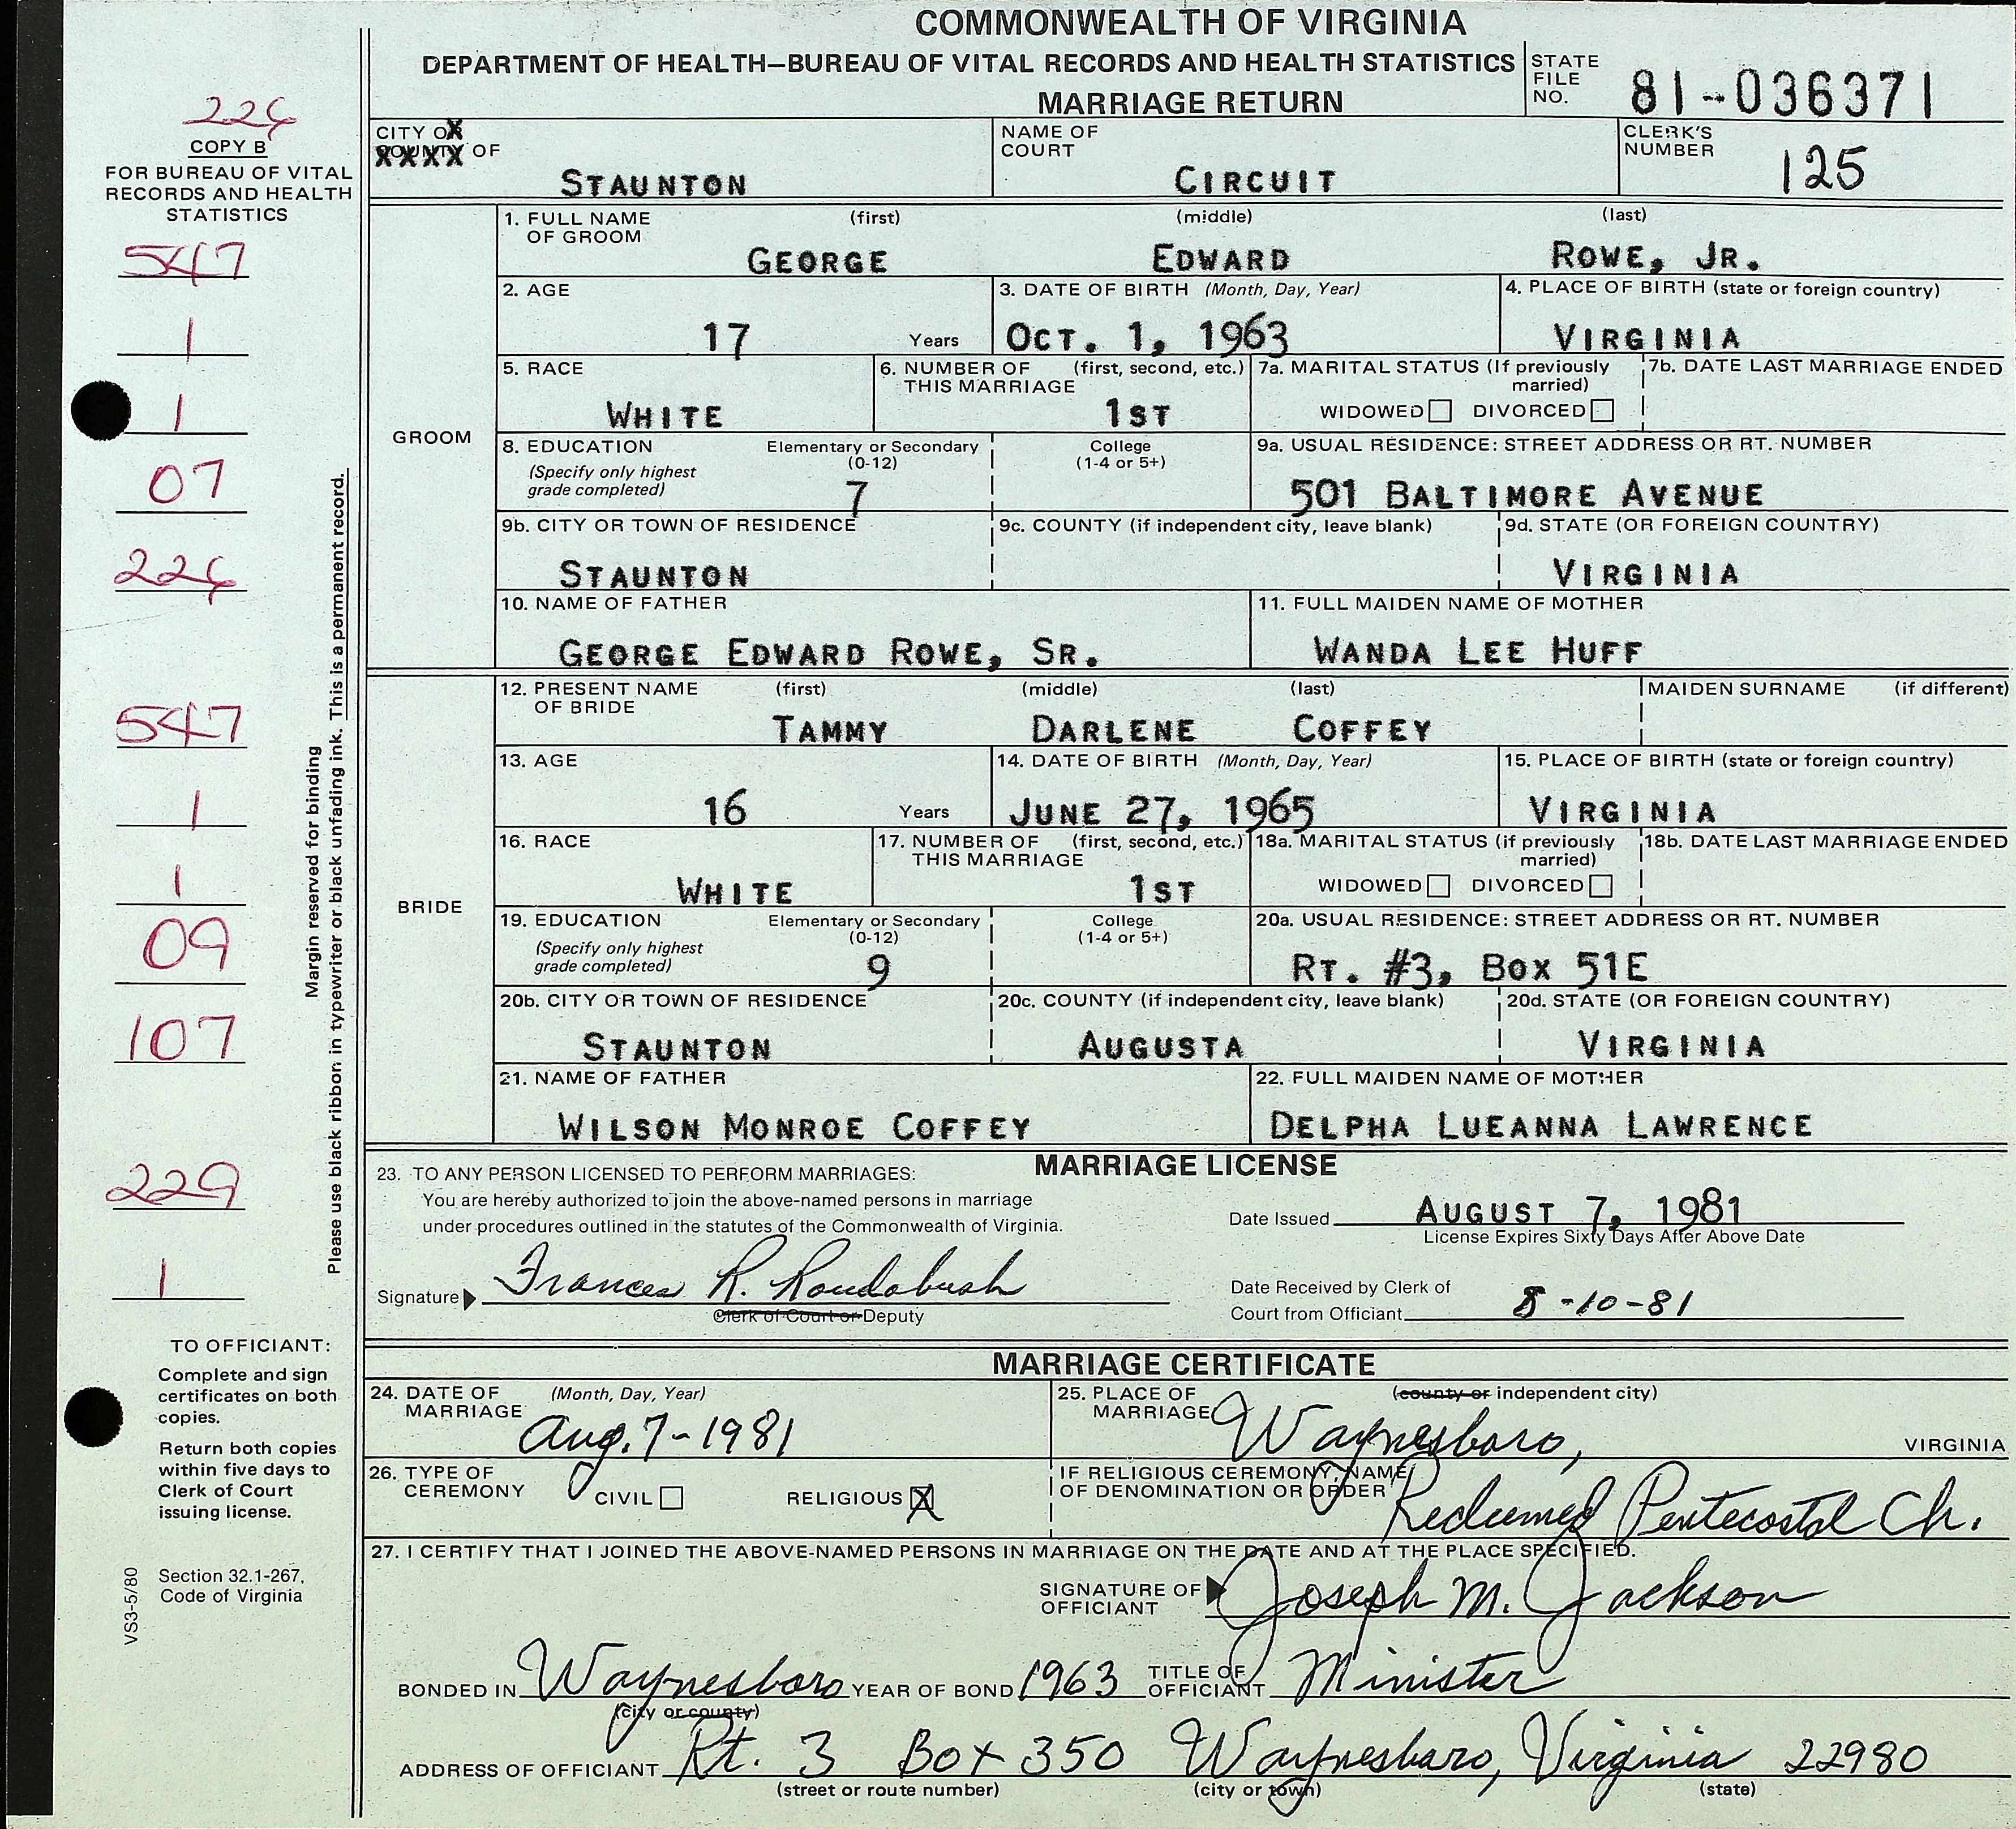 COMMONWEALTH OF VIRGINIA
DEPARTMENT OF HEALTH—BUREAU OF VITAL RECORDS AND HEALTH STATISTICS
MARRIAGE RETURN
STATE FILE NO. 81-036371
CITY OR COUNTY OF STAUNTON
NAME OF COURT CIRCUIT
CLERK'S NUMBER 125
GROOM
1. FULL NAME OF GROOM (first) GEORGE (middle) EDWARD (last) ROWE, JR.
2. AGE 17 Years
3. DATE OF BIRTH (Month, Day, Year) OCT. 1, 1963
4. PLACE OF BIRTH (state or foreign country) VIRGINIA
5. RACE WHITE
6. NUMBER OF THIS MARRIAGE (first, second, etc.) 1ST
7a. MARITAL STATUS (If previously married) WIDOWED DIVORCED
7b. DATE LAST MARRIAGE ENDED
8. EDUCATION (Specify only highest grade completed) Elementary or Secondary (0-12) 7 College (1-4 or 5+)
9a. USUAL RESIDENCE: STREET ADDRESS OR RT. NUMBER 501 BALTIMORE AVENUE
9b. CITY OR TOWN OF RESIDENCE STAUNTON
9c. COUNTY (if independent city, leave blank)
9d. STATE (OR FOREIGN COUNTRY) VIRGINIA
10. NAME OF FATHER GEORGE EDWARD ROWE, SR.
11. FULL MAIDEN NAME OF MOTHER WANDA LEE HUFF
BRIDE
12. PRESENT NAME OF BRIDE (first) TAMMY (middle) DARLENE (last) COFFEY MAIDEN SURNAME (if different)
13. AGE 16 Years
14. DATE OF BIRTH (Month, Day, Year) JUNE 27, 1965
15. PLACE OF BIRTH (state or foreign country) VIRGINIA
16. RACE WHITE
17. NUMBER OF THIS MARRIAGE (first, second, etc.) 1ST
18a. MARITAL STATUS (if previously married) WIDOWED DIVORCED
18b. DATE LAST MARRIAGE ENDED
19. EDUCATION (Specify only highest grade completed) Elementary or Secondary (0-12) 9 College (1-4 or 5+)
20a. USUAL RESIDENCE: STREET ADDRESS OR RT. NUMBER RT. #3, BOX 51E
20b. CITY OR TOWN OF RESIDENCE STAUNTON
20c. COUNTY (if independent city, leave blank) AUGUSTA
20d. STATE (OR FOREIGN COUNTRY) VIRGINIA
21. NAME OF FATHER WILSON MONROE COFFEY
22. FULL MAIDEN NAME OF MOTHER DELPHA LUEANNA LAWRENCE
MARRIAGE LICENSE
23. TO ANY PERSON LICENSED TO PERFORM MARRIAGES:
You are hereby authorized to join the above-named persons in marriage
under procedures outlined in the statutes of the Commonwealth of Virginia.
Date Issued AUGUST 7, 1981
License Expires Sixty Days After Above Date
Signature Frances R. Roudabush
Clerk of Court or Deputy
Date Received by Clerk of
Court from Officiant 8-10-81
MARRIAGE CERTIFICATE
24. DATE OF MARRIAGE (Month, Day, Year) Aug. 7-1981
25. PLACE OF MARRIAGE (county or independent city) Waynesboro, VIRGINIA
26. TYPE OF CEREMONY CIVIL RELIGIOUS X
IF RELIGIOUS CEREMONY, NAME OF DENOMINATION OR ORDER Redeemed Pentecostal Ch.
27. I CERTIFY THAT I JOINED THE ABOVE-NAMED PERSONS IN MARRIAGE ON THE DATE AND AT THE PLACE SPECIFIED.
SIGNATURE OF OFFICIANT Joseph M. Jackson
BONDED IN Waynesboro YEAR OF BOND 1963 TITLE OF OFFICIANT Minister
(city or county)
ADDRESS OF OFFICIANT Rt. 3 Box 350 Waynesboro, Virginia 22980
(street or route number) (city or town) (state)
226
COPY B
FOR BUREAU OF VITAL
RECORDS AND HEALTH
STATISTICS
547
1
1
07
226
547
1
1
09
107
229
1
Margin reserved for binding
Please use black ribbon in typewriter or black unfading ink. This is a permanent record.
TO OFFICIANT:
Complete and sign
certificates on both
copies.
Return both copies
within five days to
Clerk of Court
issuing license.
Section 32.1-267,
Code of Virginia
VS3-5/80